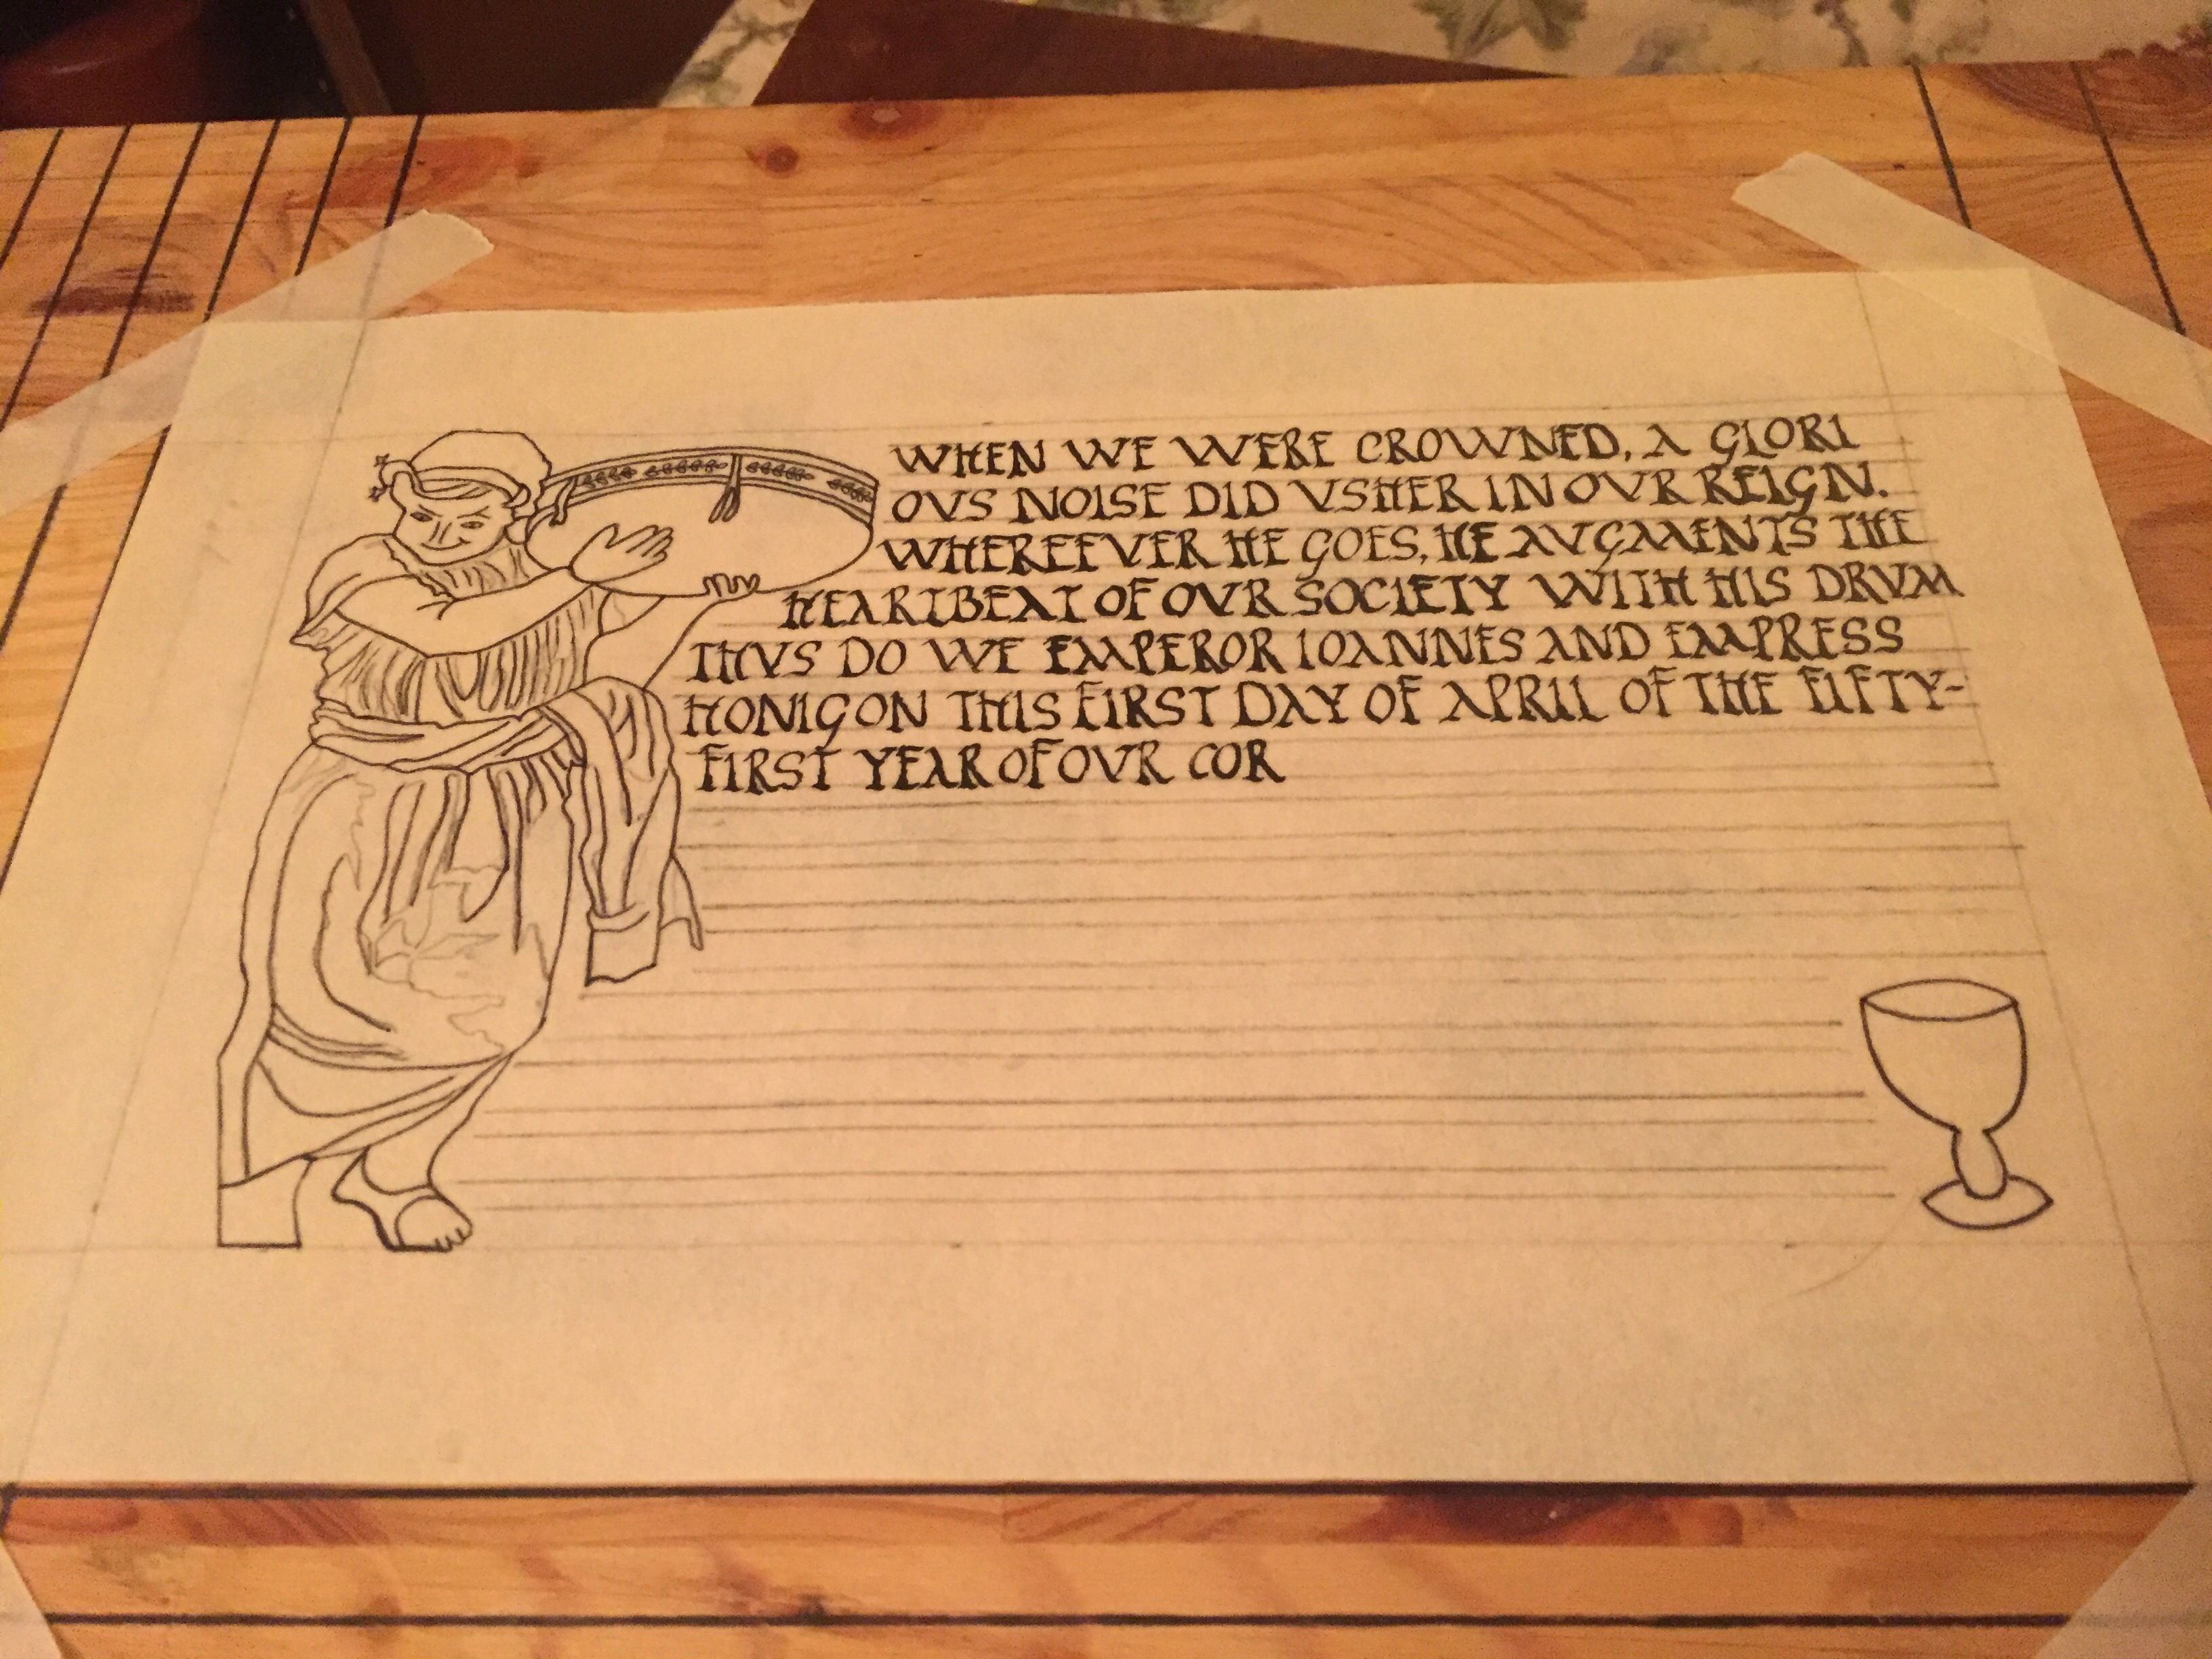 WHEN WE WERE CROWNED, A GLORI
OVS NOISE DID VSHER IN OVR REIGN.
WHEREEVER HE GOES, HE AVGMENTS THE
HEARTBEAT OF OVR SOCIETY WITH HIS DRVM
THVS DO WE EMPEROR IOANNES AND EMPRESS
HONIG ON THIS FIRST DAY OF APRIL OF THE FIFTY-
FIRST YEAR OF OVR COR